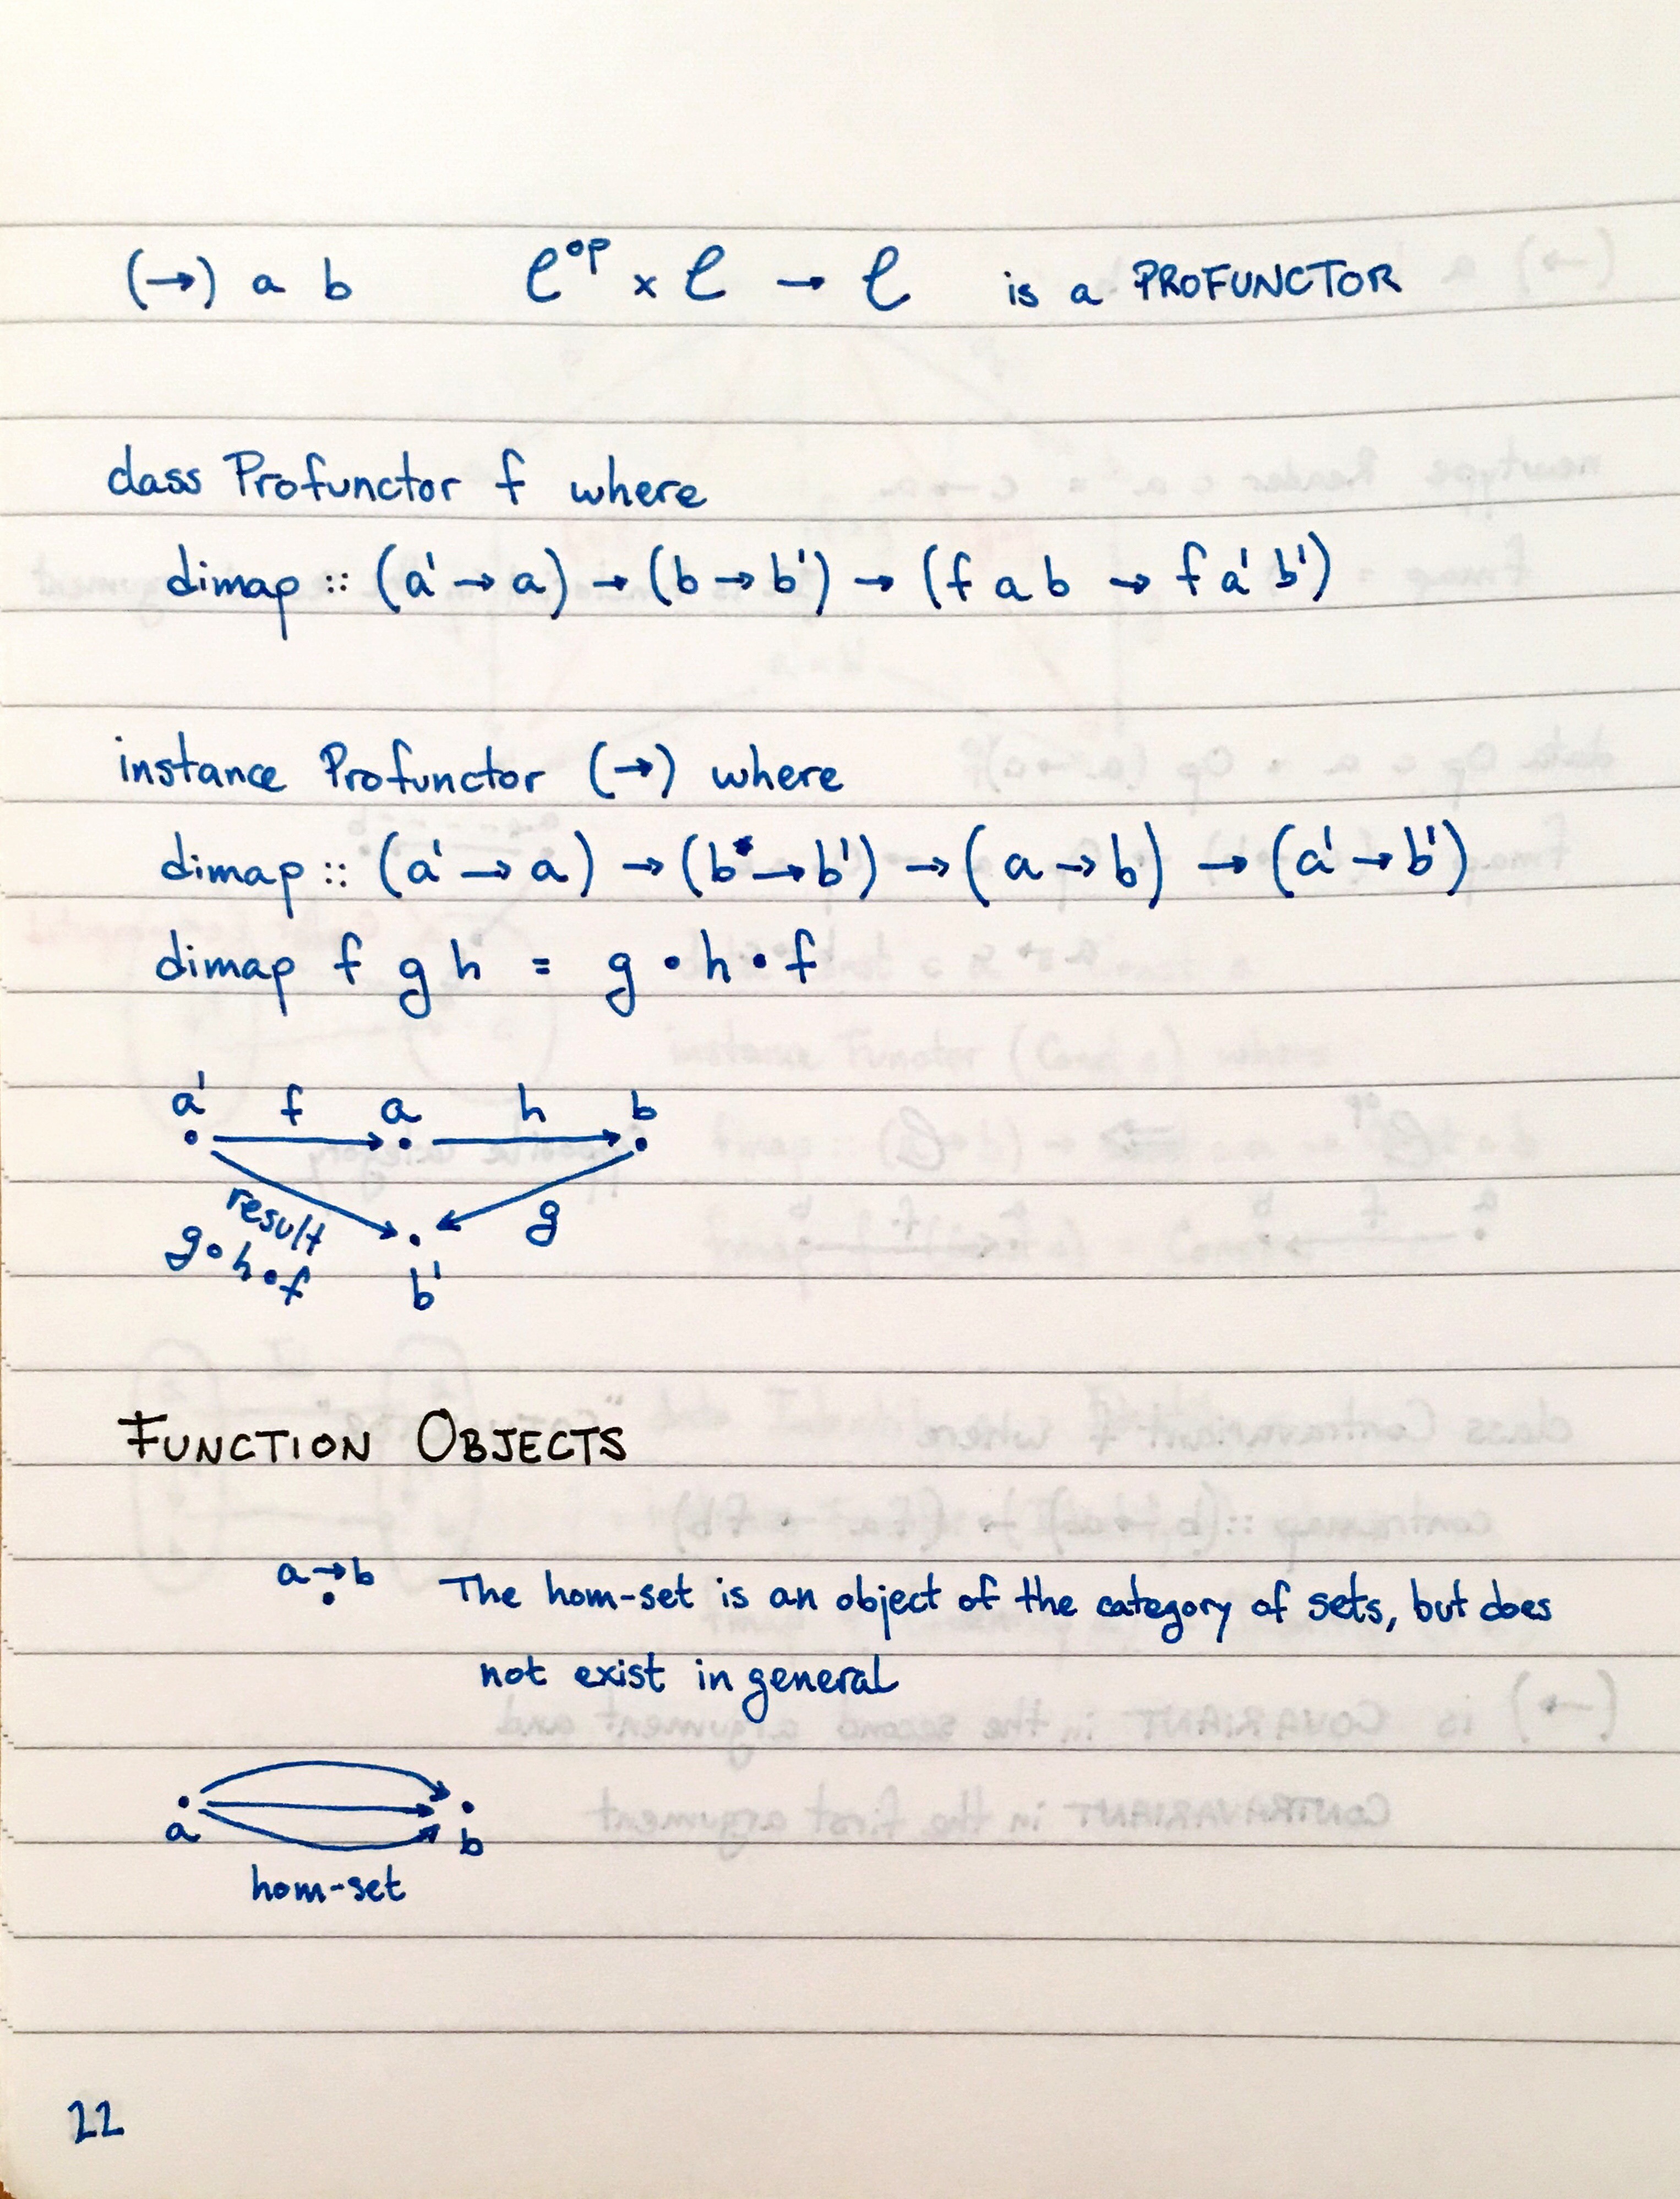 (→) a b 𝒞ᵒᵖ × 𝒞 → 𝒞 is a PROFUNCTOR
class Profunctor f where
dimap :: (a' → a) → (b → b') → (f a b → f a' b')
instance Profunctor (→) where
dimap :: (a' → a) → (b → b') → (a → b) → (a' → b')
dimap f g h = g ∘ h ∘ f
a' f a h b
result g
g ∘ h ∘ f b'
FUNCTION OBJECTS
a → b The hom-set is an object of the category of sets, but does
not exist in general
a b
hom-set
22